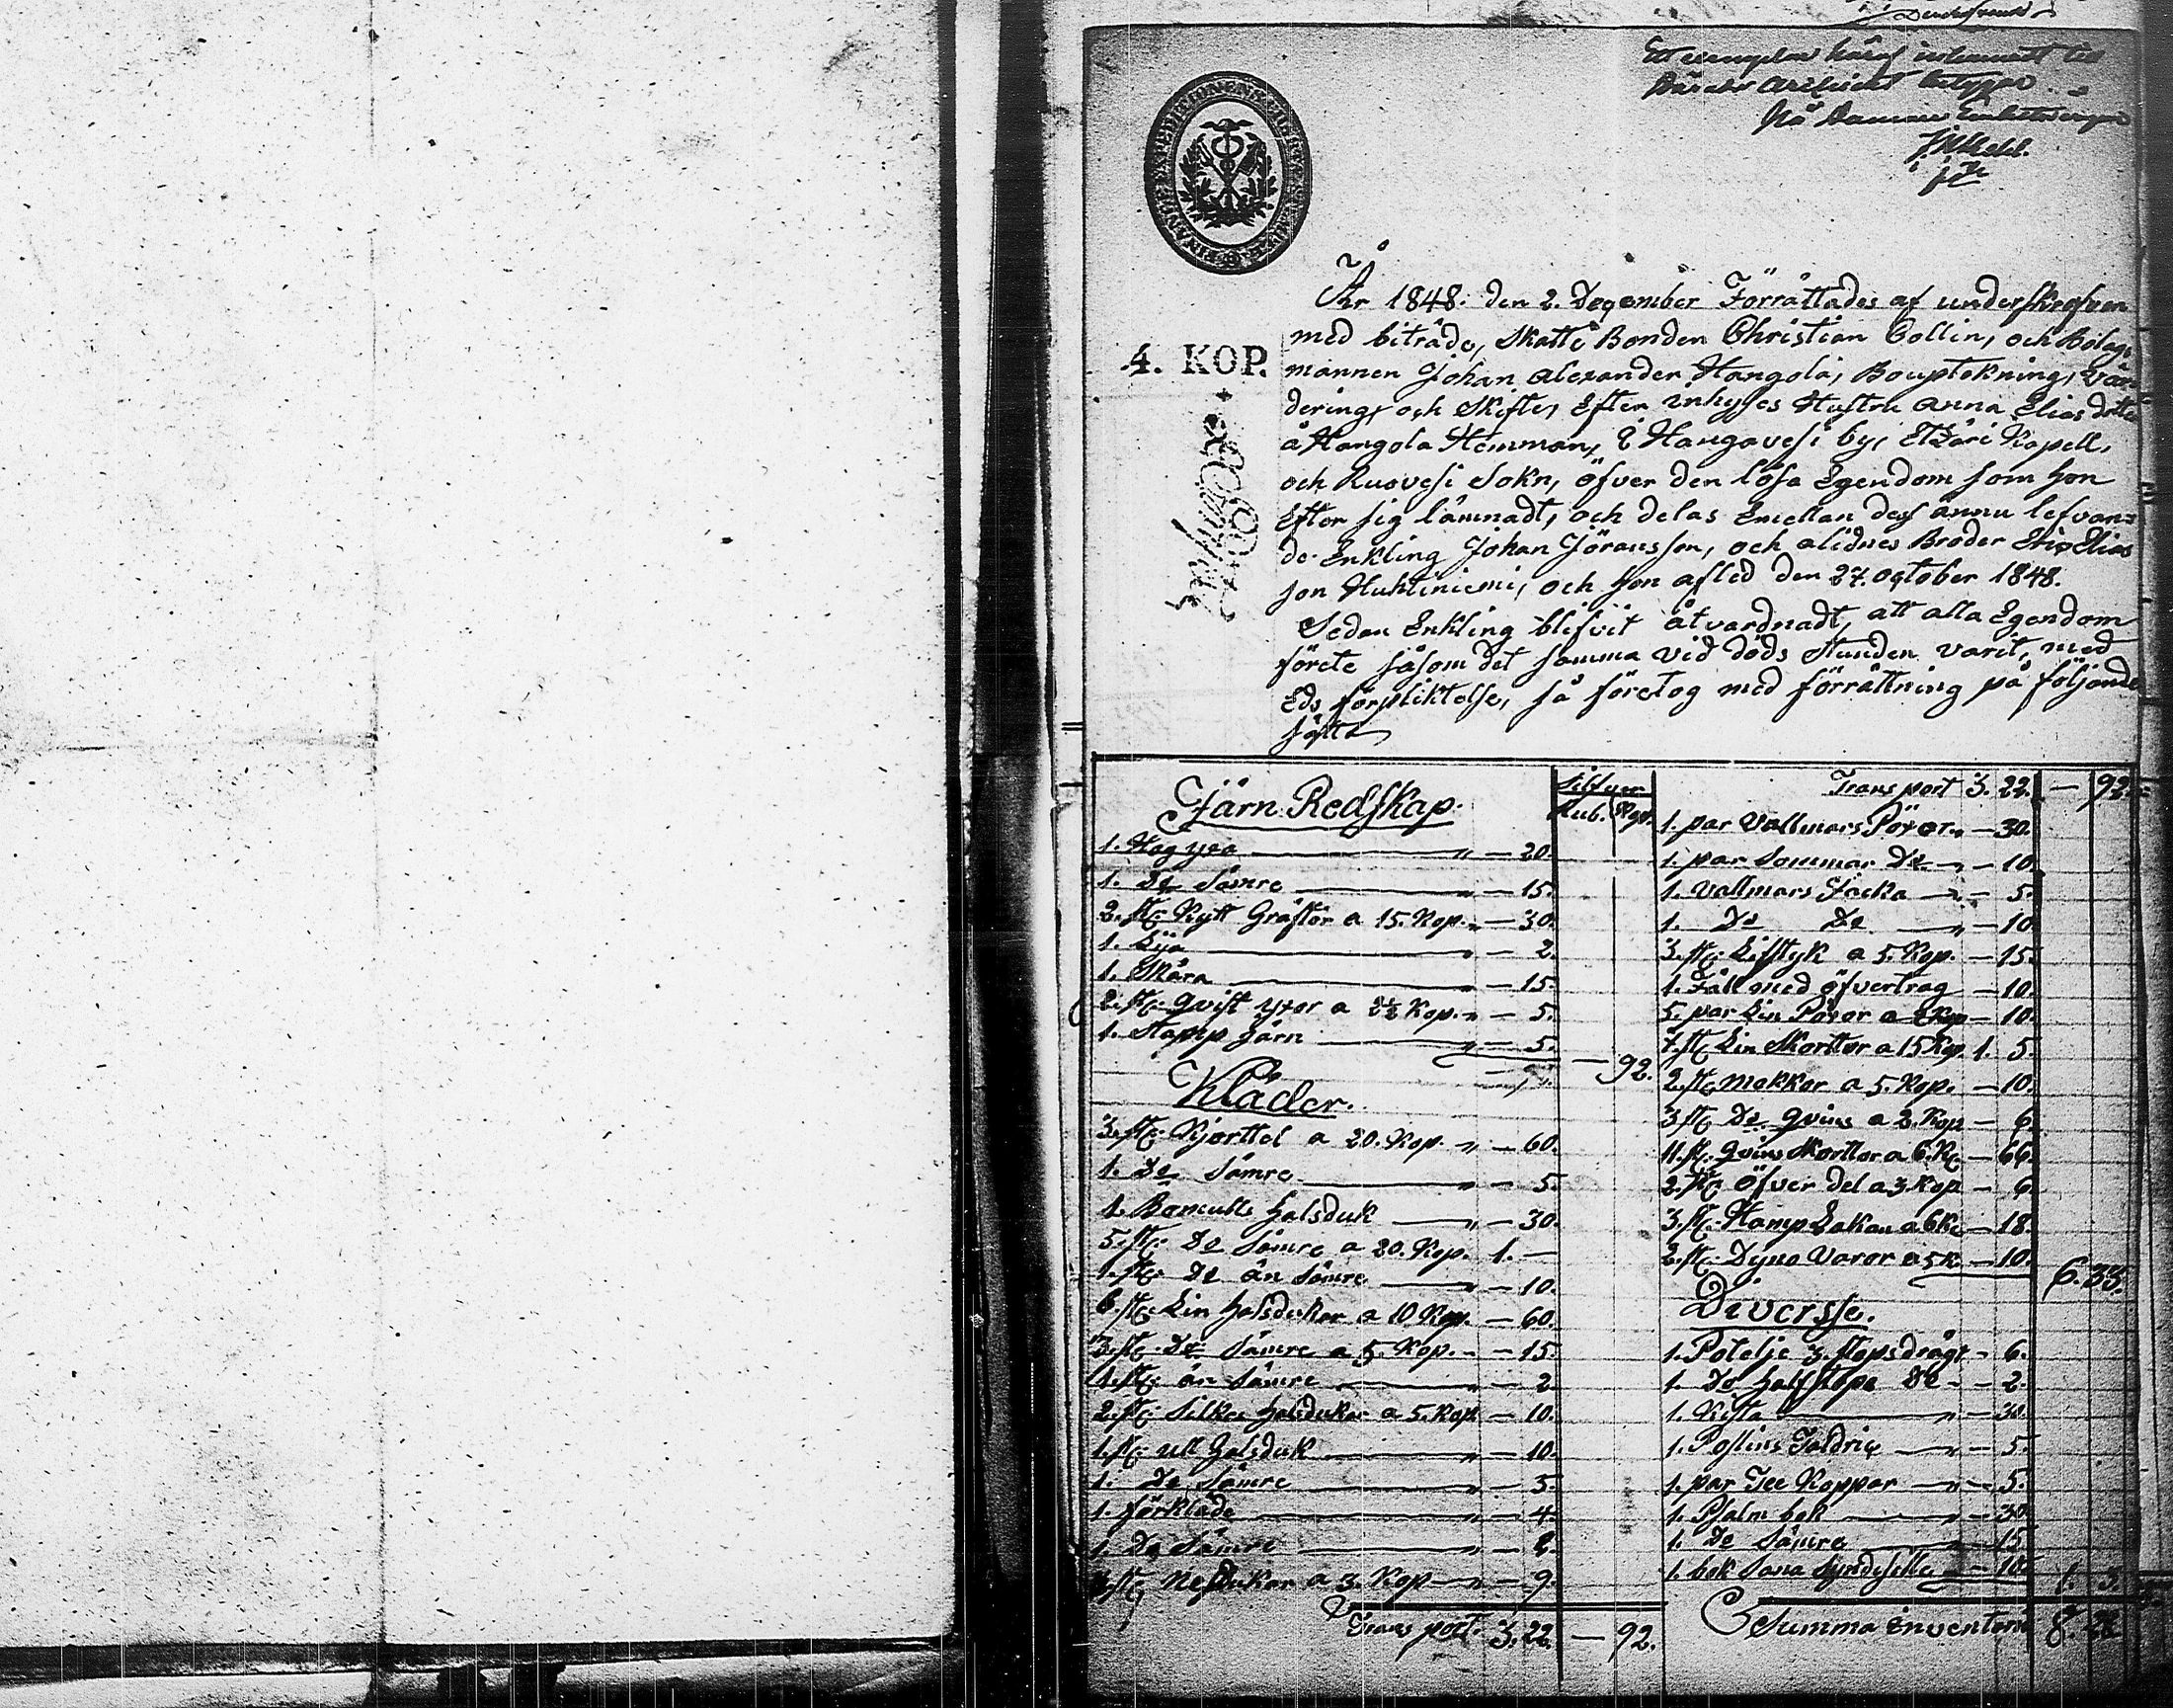 Ett exemplar häraf inlemnadt till
År 1848. den 2. December Förrättades af underskrefven
med biträde, Skatte Bonden Christian Collin, och Bolags
4. KOP.
mannen Johan Alexander Hangola, Bouptekning, Vär-
dering, och Skifte, Efter inhyses Hustru Anna Elias dotter
å Hangola Hemman, i Haugavesi by, Etzäri Kapell,
och Ruovesi Sokn, öfver den lösa Egendom som hon
Efter sig lämnadt, och delas Emellan des ännu lefvan=
de Enkling Johan Jöransson, och Broder Elias
son Huhtiniemi, och hon afled den 27. october 1848.
Sedan Enkling blifvit åtvardnadt, att alla Egendom
förete såsom det samma vid döds stunden varit, med
Eds förpliktelse, så företog med förrättning på följande
sätt
Järn Redskap.
Silfver
Rub. Kop.
1. Hag yxa — 20.
1. De Sämre — 15.
2. st. Kytt Gräftor a 15. Kop. — 30.
1. Lija — 2.
1. Skära — 15.
2. st. qvist yxor a 2½ Kop. — 5.
1. Stamp järn — 5.
— 92.
Kläder.
3. st. Kjorttel a 20. Kop. — 60.
1. De Sämre — 5.
1. Bomulls halsduk — 30.
5. st. De Sämre a 20. Kop. 1. —
1. st. De än Sämre — 10.
6. st. Lin halsdukar a 10 Kop. — 60.
3. st. De Sämre a 5. Kop. — 15.
1. st. än Sämre — 2.
2. st. Silkes halsdukar a 5. Kop — 10.
1. st. ull halsduk — 10.
1. De Sämre — 5.
1. förkläde — 4.
1. De Sämre — 2.
3. st. Nesdukar a 3. Kop — 9.
Transport. 3. 22. — 92.
Transport 3. 22. — 92.
1. par Vallmars Pöxor — 30.
1. par Sommar De — 10.
1. Vallmars Jacka — 5.
1. De De — 10.
3. st. Lifstyk a 5. Kop. — 15.
1. Fäll med öfvertrag — 10.
5. par Lin Pöxor a 2 Kop — 10.
7. st. Lin Skorttor a 15 Kop. 1. 5.
2. st. Mekkor a 5. Kop. — 10.
3. st. De qvins a 2. Kop — 6.
11. st. qvins Skorttor a 6. K. — 66.
2. st. öfver del a 3. Kop — 6.
3. st. Hamp Lakan a 6 K. — 18.
2. st. Dyno Varor a 5 K. — 10.
6. 35.
Diversse.
1. Potelje 3. stops drägt — 6.
1. De half stops De — 2.
1. Kista — 30.
1. Poslins Taldrik — 5.
1. par Tee Koppar — 5.
1. Psalm bok — 30.
1. De Sämre — 15.
1. bok — 10.
1. 3.
Summa Inventarii 8.